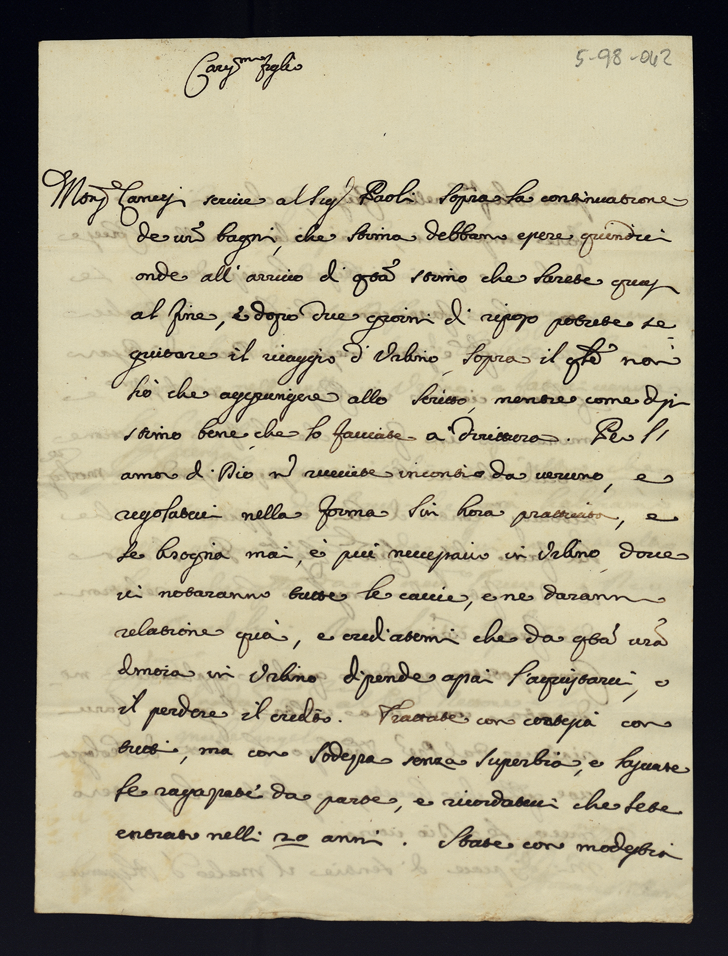 5-98-042
Car.mo figlio
Mons.r Lancisi scrive al Sig.r Paoli sopra la continuatione
de vri bagni, che stima debbano essere quindici
onde all' arrivo di qsta stimo che sarete quasi
al fine, e dopo due giorni di riposo potrete se
guitare il viaggio d' Urbino, sopra il qle non
hò che aggiungere allo scritto, mentre come dissi
stimo bene, che lo facciate a dirittura. Per l'
amor di Dio n riceviate incontro da veruno, e
regolatevi nella forma sin hora pratticata, e
se bisogna mai, è più necessario in Urbino, dove
vi notaranno tutte le caccie, e ne daranno
relatione quà, e crediatemi che da qsta vra
dimora in Urbino dipende assai l'acquistarvi, o
il perdere il credito. Trattate con cortesia con
tutti, ma con sodezza senza superbia, e lasciate
le ragazzate da parte, e ricordatevi che sete
entrato nelli 20 anni. State con modestia